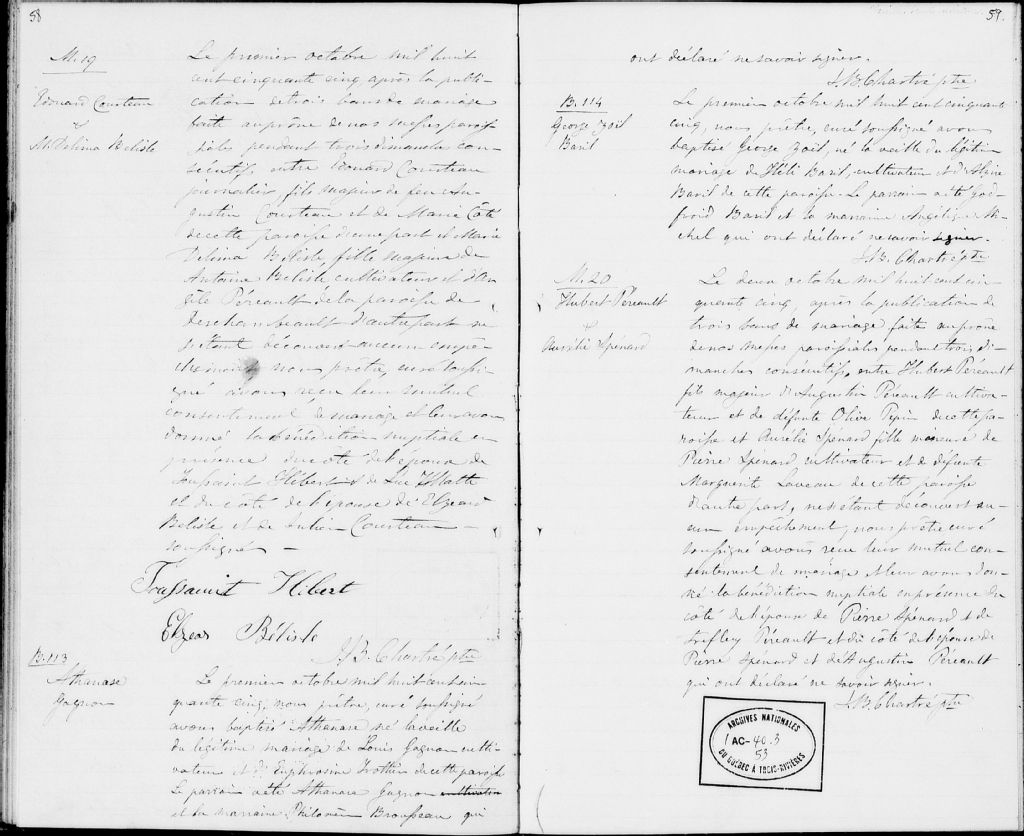 58
M. 19
Edouard Courteau
&
M. Délima Belisle
Le premier octobre mil huit
cent cinquante cinq après la publi-
cation de trois bans de mariage
faite au prône de nos messes parois-
siales pendant trois dimanches con-
sécutifs, entre Edouard Courteau
journalier fils majeur de feu Au-
gustin Courteau et de Marie Côté
de cette paroisse d'une part et Marie
Délima Belisle fille majeure de
Antoine Belisle cultivateur et d'An-
gèle Péreault de la paroisse de
Deschambeault d'autre part ne
s'étant découvert aucun empê-
chement nous prêtre, curé soussi-
gné avons reçu leur mutuel
consentement de mariage et leur avons
donné la bénédiction nuptiale en
présence du côté de l'époux de
Toussaint Hébert & de Luc Matte
et du côté de l'épouse de Elzéar
Belisle et de Courteau
soussignés
Toussaint Hébert
Elzear Bélisle
J.B. Chartré ptre
B. 113
Athanase
Gagnon
Le premier octobre mil huit cent cin
quante cinq, nous prêtre, curé soussigné
avons baptisé Athanase né la veille
du légitime mariage de Louis Gagnon culti-
vateur et d'Euphrosine Trottier de cette paroisse
Le parrain a été Athanase Gagnon cultivateur
et la marraine Philomène Brousseau qui
59.
ont déclaré ne savoir signer.
J.B. Chartré ptre
B. 114
George Zoël
Baril
Le premier octobre mil huit cent cinquante
cinq, nous prêtre, curé soussigné avons
baptisé George Zoël, né la veille du légitime
mariage de Héli Baril, cultivateur et d'
Baril de cette paroisse. Le parrain a été God-
froid Baril et la marraine Angélique Mi-
chel qui ont déclaré ne savoir signer.
J.B. Chartré ptre
M. 20
Hubert Péreault
&
Aurélie Spénard
Le deux octobre mil huit cent cin-
quante cinq, après la publication de
trois bans de mariage faite au prône
de nos messes paroissiales pendant trois di-
manches consécutifs, entre Hubert Péreault
fils majeur d'Augustin Péreault cultiva-
teur et de défunte Olive Pepin de cette pa-
roisse et Aurélie Spénard fille mineure de
Pierre Spénard cultivateur et de défunte
Marguerite Laveau de cette paroisse
d'autre part, ne s'étant découvert au-
cun empêchement, nous prêtre curé
soussigné avons reçu leur mutuel con-
sentement de mariage & leur avons don-
né la bénédiction nuptiale en présence du
côté de l'époux de Pierre Spénard & de
Péreault et du côté de l'épouse de
Pierre Spénard et d'Augustin Péreault
qui ont déclaré ne savoir signer.
J.B. Chartré ptre
ARCHIVES NATIONALES
AC-40.3
53
DU QUÉBEC À TROIS-RIVIÈRES